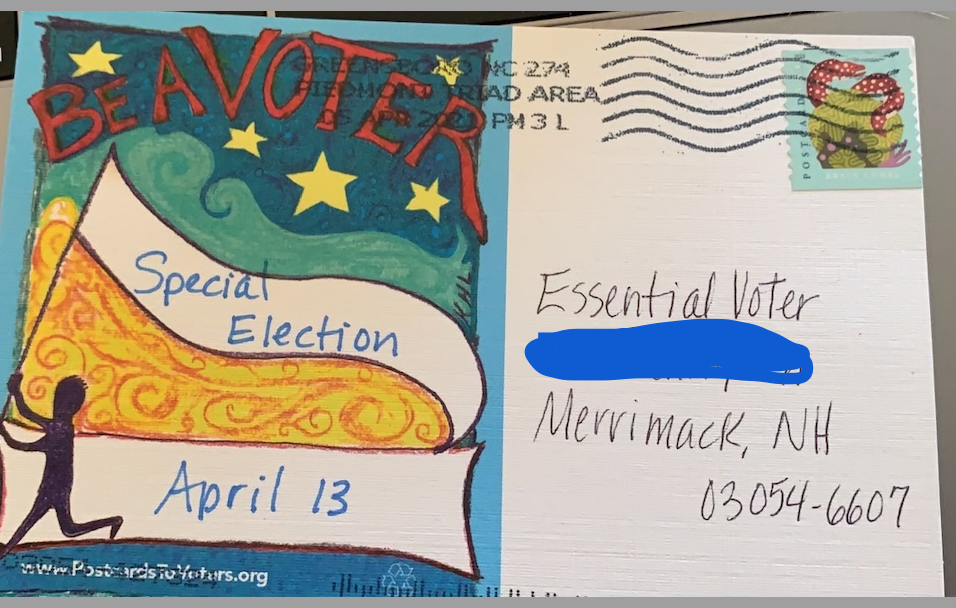 BE A VOTER
GREENSBORO NC 274
PIEDMONT TRIAD AREA
05 APR 2021 PM 3 L
Special
Election
April 13
www.PostcardsToVoters.org
POSTCARD
Essential Voter
Merrimack, NH
03054-6607